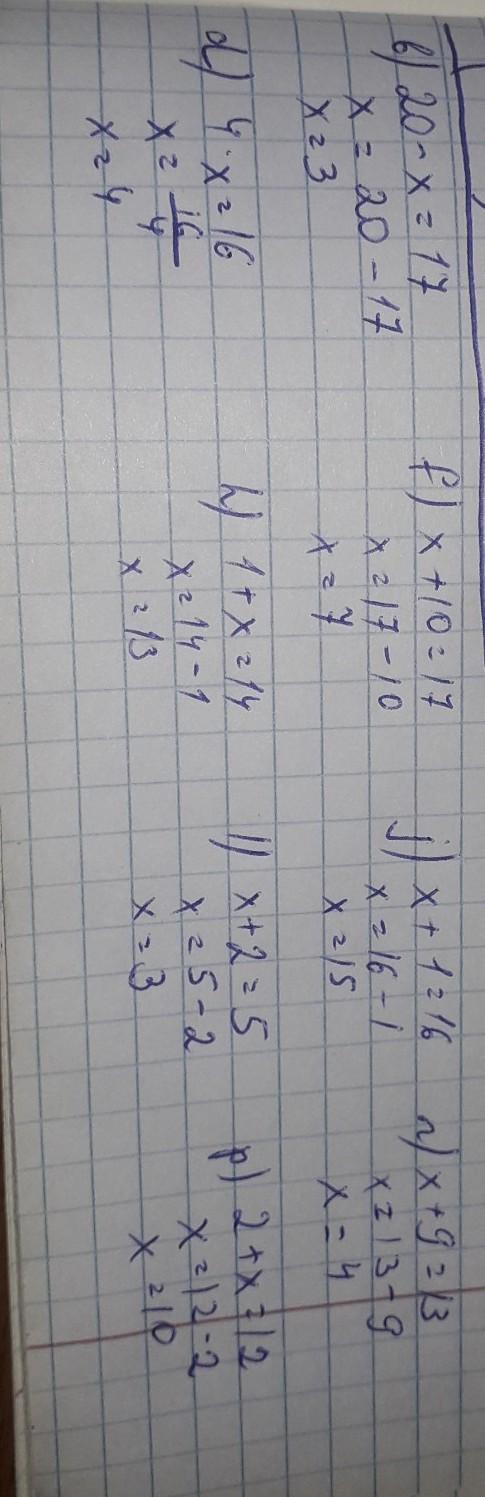 b) 20 - x = 17
x = 20 - 17
x = 3
f) x + 10 = 17
x = 17 - 10
x = 7
j) x + 1 = 16
x = 16 - 1
x = 15
n) x + 9 = 13
x = 13 - 9
x = 4
d) 4 · x = 16
x = 16/4
x = 4
h) 1 + x = 14
x = 14 - 1
x = 13
l) x + 2 = 5
x = 5 - 2
x = 3
p) 2 + x = 12
x = 12 - 2
x = 10